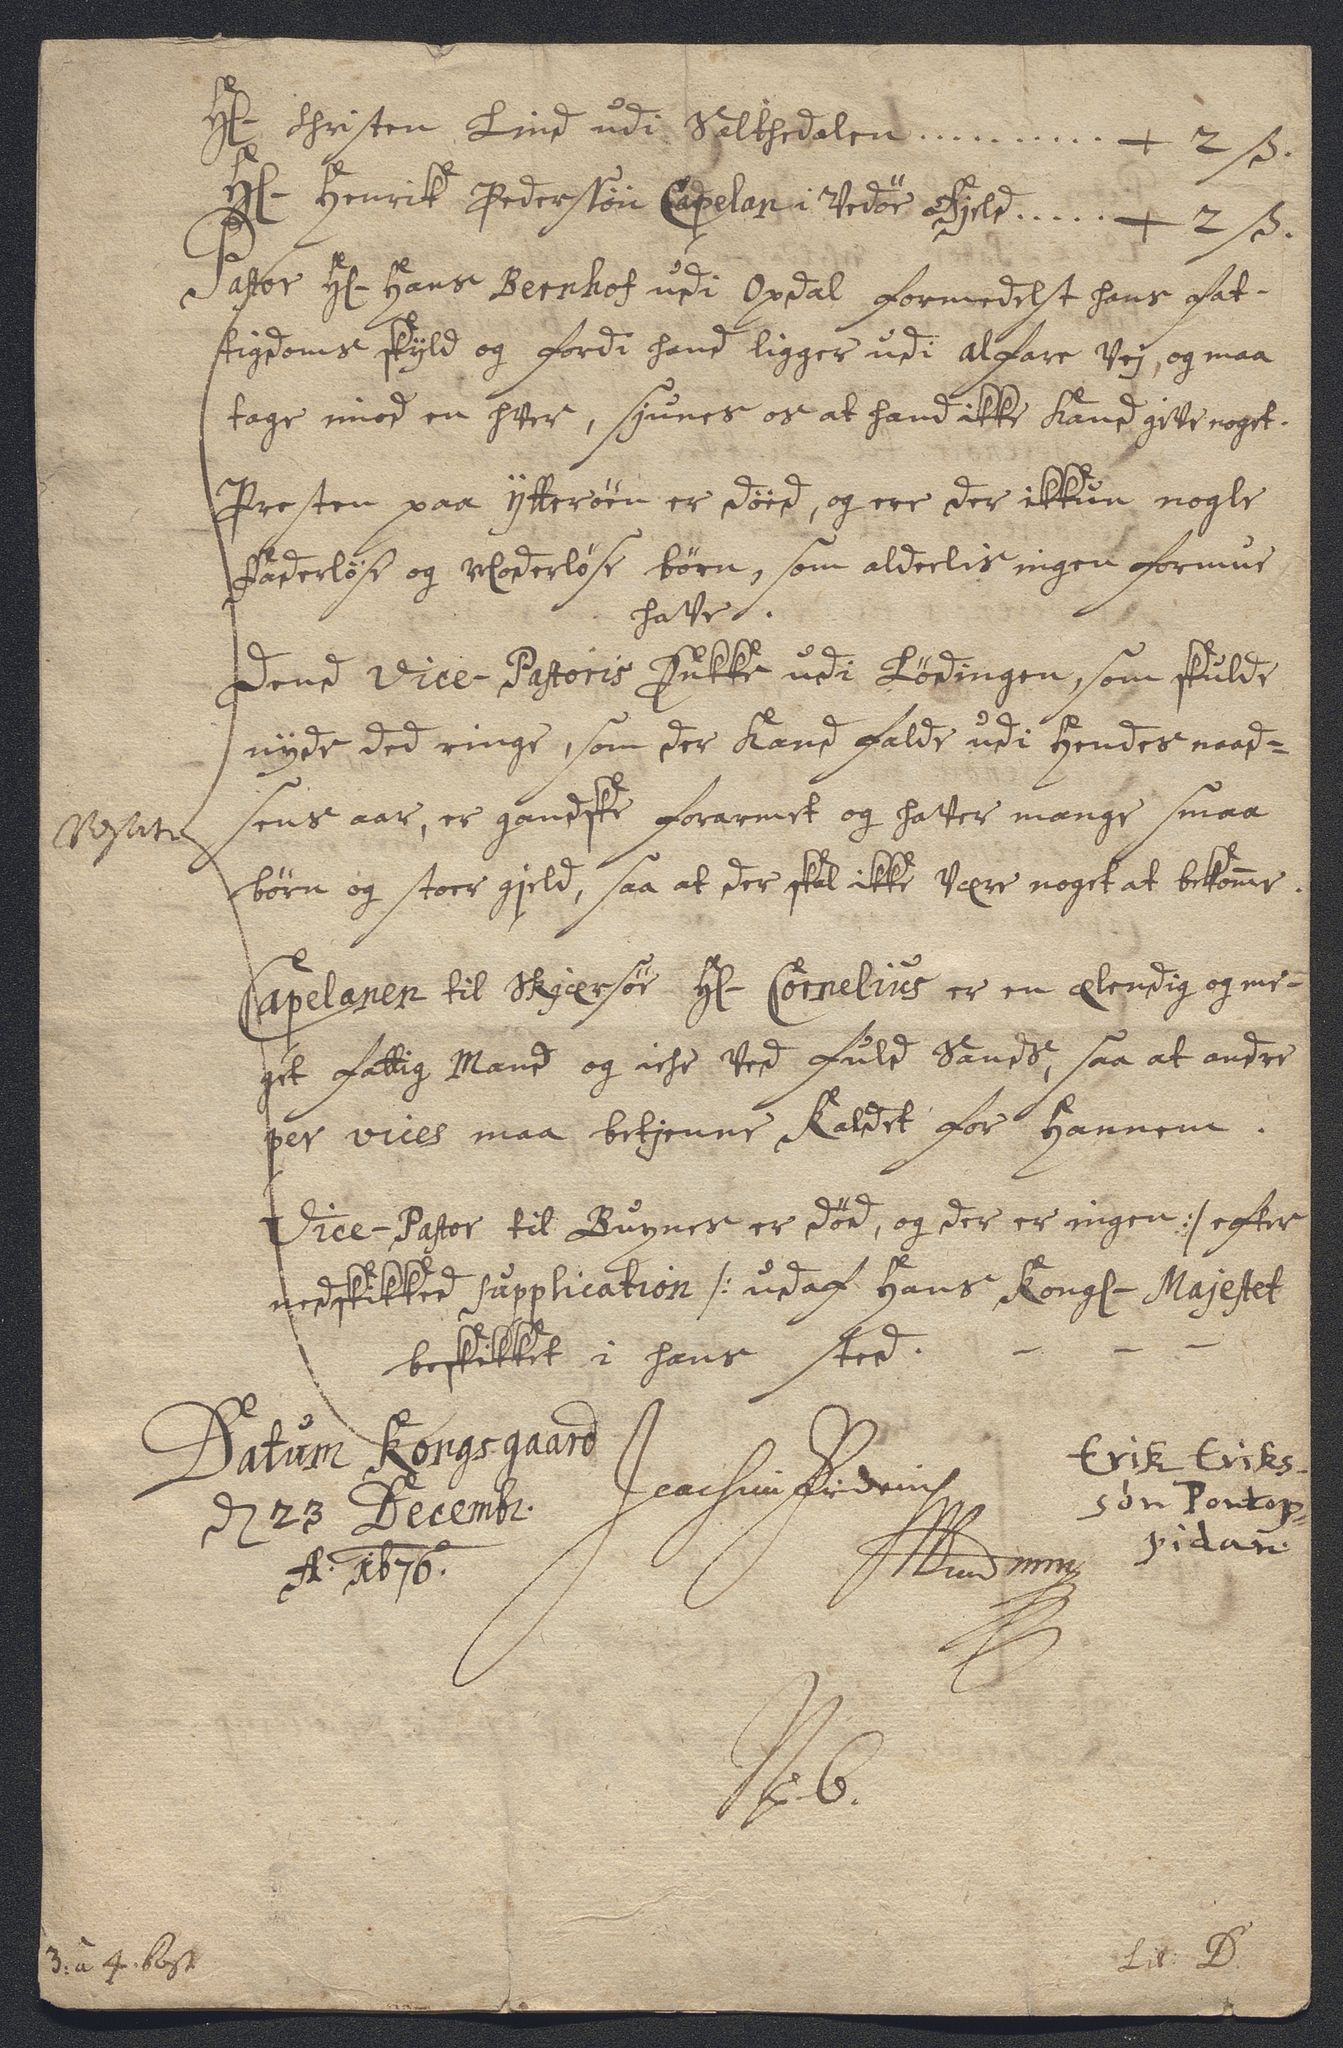 Hl- Christen Lind udi Salthedalen .......... + 2 ß.
Hl- Henrik Pederssön Capelan i Vedöe Gjeld ..... + 2 ß.
Pastor Hl- Hans Bernhof udi Opdal formedelst hans fat-
tigdoms skyld og fordi hand ligger udi alfare Vej, og maa
tage imod en hver, sjunes os at hand ikke kand give noget.
Presten paa Ÿtterøen er döed, og ere der ikkun nogle
Faderlöse og Moderlöse börn, som alderlis ingen formue
have.
Dend Vice-Pastoris Enkke udi Lödingen, som skulde
nyde ded ringe, som der kand falde udi Hendes naad=
sens aar, er gandske forarmet og hafver mange smaa
börn og stoer gjeld, saa at der skal ikke være noget at bekomme.
Capelanen til Skjærsöe Hl- Cornelius er en elendig og me-
get fattig Mand og iche ved fuld Sands, saa at andre
per vices maa betjenne kaldet for Hannem.
Vice-Pastor til Buynes er död, og der er ingen :/ efter
nedskikked supplication /: udaf Hans Kongl- Majestet
beskikket i hans sted. - - -
Datum Kongsgaard
d 23 Decembr.
A. 1676.
Joachim Friderich
Erik Eriks-
sön Pontop-
pidan.
No 6.
3: a 4. Post
Lit: D.